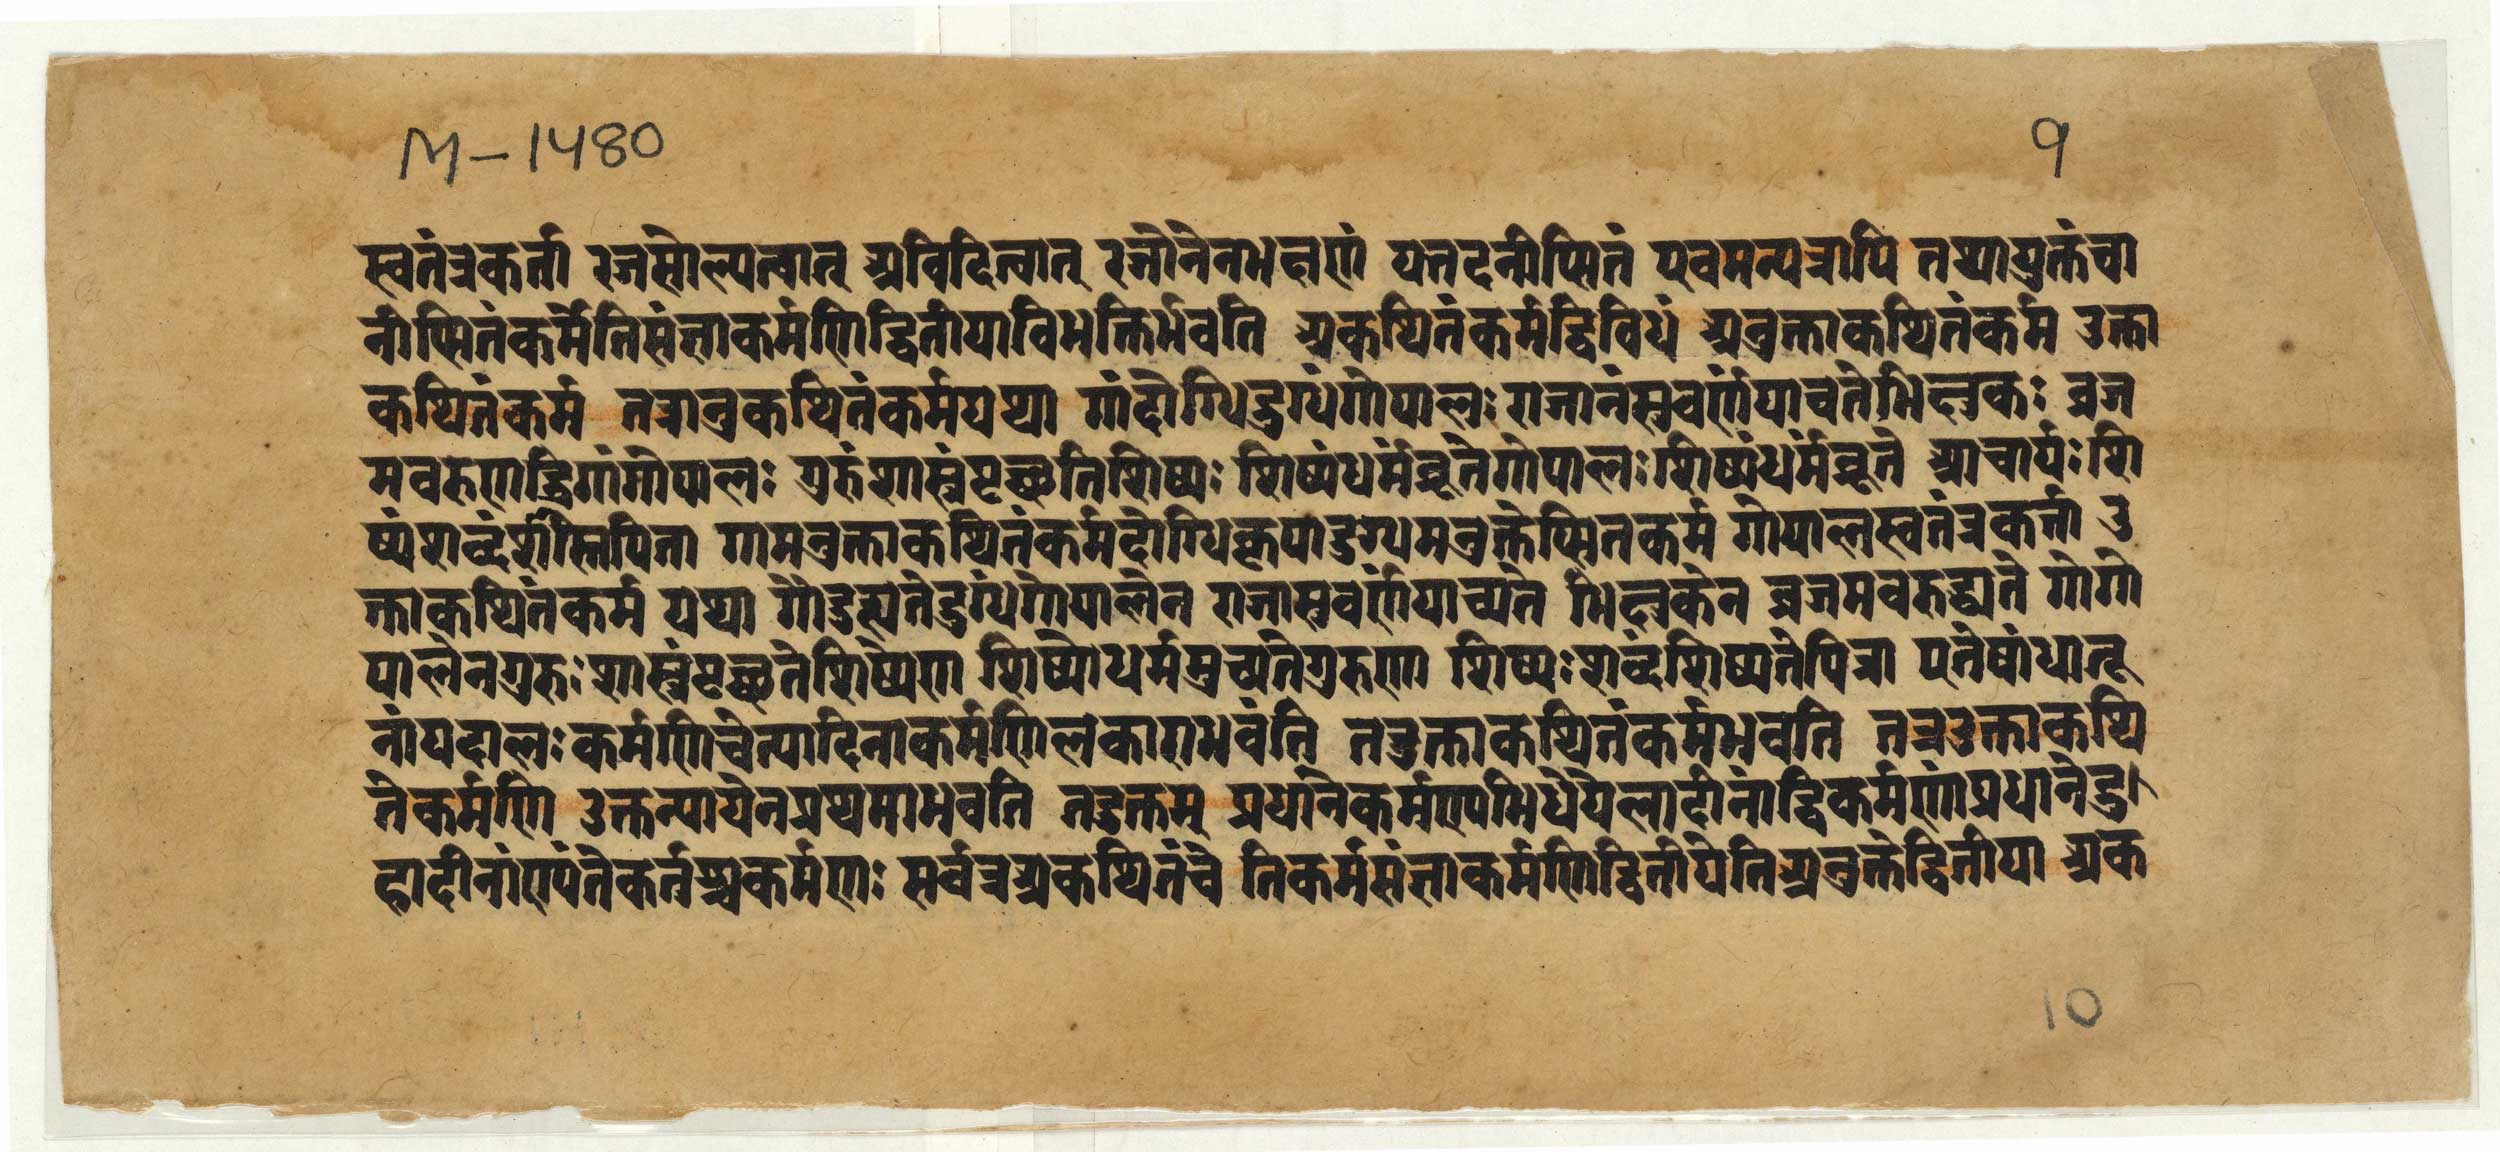 M-1480
९
स्वतंत्रकर्ता रजसोल्पत्वात् अविदित्वात् रजोनेनभक्षणं यत्तदनीप्सितं एवमन्यत्रापि तथायुक्तंचा
नीप्सितंकर्मेतिसंज्ञाकर्मणिद्वितीयाविभक्तिर्भवति अकथितंकर्मद्विविधं अनुक्ताकथितंकर्म उक्ता
कथितंकर्म तत्रानुकथितंकर्मयथा गांदोग्धिदुग्धंगोपालः राजानंसुवर्णंयाचतेभिक्षुकः व्रज
मवरुणाद्धिगांगोपालः गुरुंशास्त्रंपृच्छतिशिष्यः शिष्यंधर्मंब्रूतेगोपालः शिष्यंधर्मंब्रूते आचार्यः शि
ष्यंशब्दंशास्तिपिता गामनुक्ताकथितंकर्मदोग्धिकृयादुग्धमनुक्तेप्सितकर्म गोपालस्वतंत्रकर्त्ता उ
क्ताकथितंकर्म यथा गौदुह्यतेदुग्धंगोपालेन राजासुवर्णंयाच्यते भिक्षुकेन व्रजमवरुद्ध्यते गोगो
पालेनगुरुः शास्त्रंपृच्छतेशिष्येण शिष्योधर्ममुच्यतेगुरुणा शिष्यः शब्दंशिष्यतेपित्रा एतेषांधातू
नांयदालः कर्मणिचेत्यादिनाकर्मणिलकाराभवंति तदुक्ताकथितंकर्मभवति तत्रउक्ताकथि
तेकर्मणि उक्तन्यायेनप्रथमाभवति तदुक्तम् प्रधानेकर्मण्यभिधेयेलादीनांद्विकर्मणांप्रधानेदु
हादीनांण्यंतेकर्तुश्चकर्मणः सर्वत्रअकथितंचे तिकर्मसंज्ञाकर्मणिद्वितीयेतिअनुक्तेद्वितीया अक
10